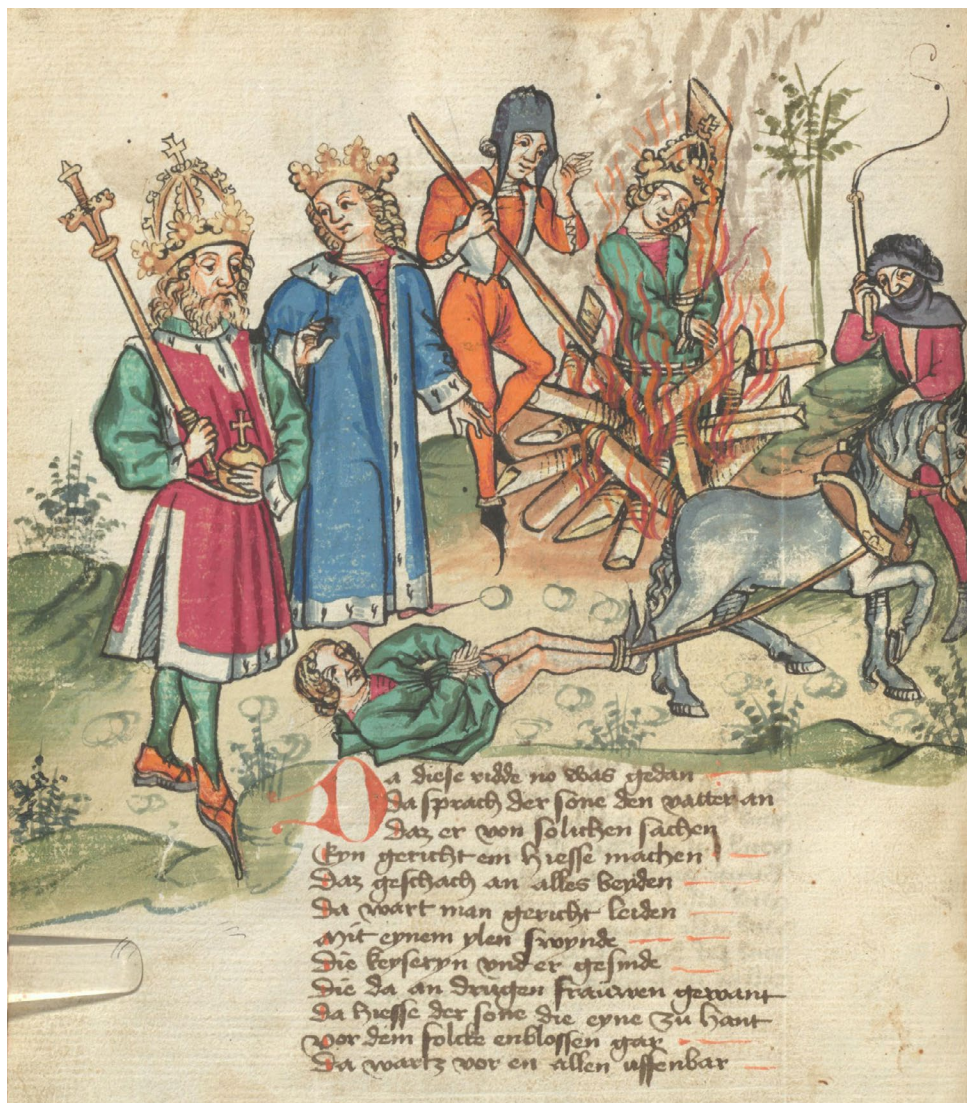 Da diese ridde no was gedan
Da sprach der sone den vatter an
Daz er von solichen sachen
Eyn gericht em hiesse machen
Daz geschach an alles beyden
Da wart man gericht leiden
Mit eynem ylen swynde
Die keyseryn vnd er gesinde
Die da an drugen frauwen gewant
Da hiesse der sone die eyne zu hant
vor dem folcke enblossen gar
Da wartz vor en allen uffenbar